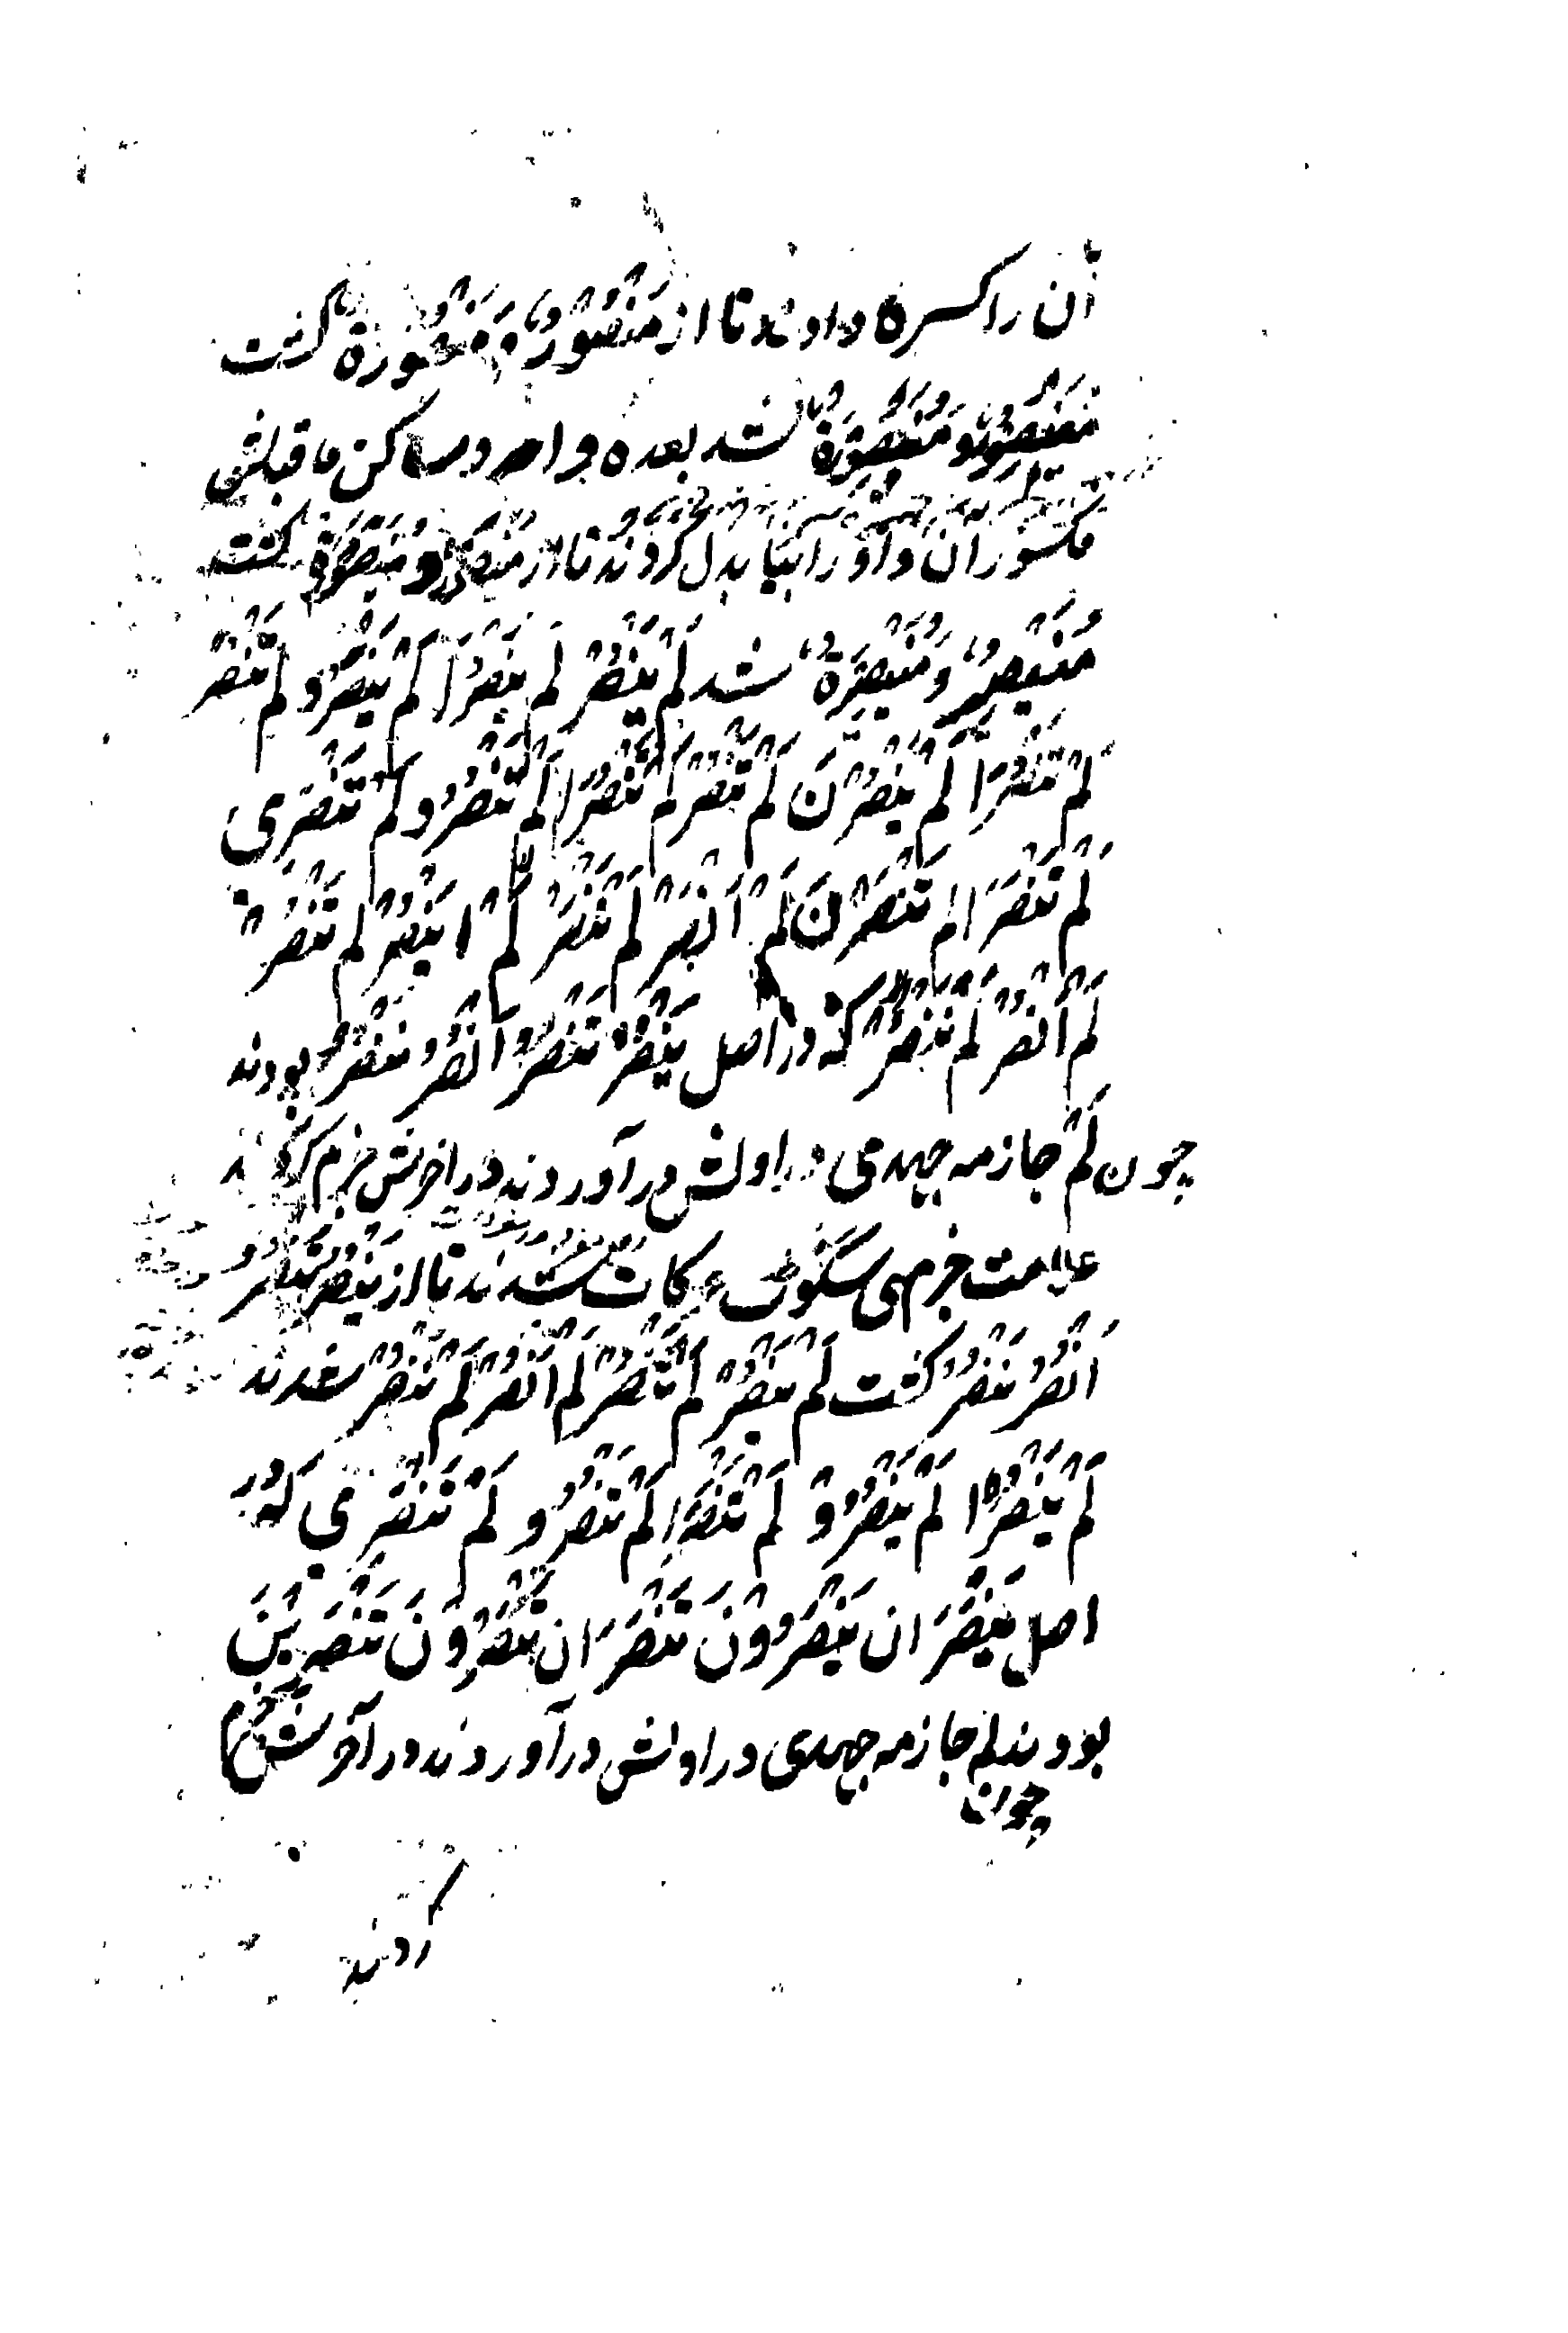 آن را کسره دادند تا از مَنْصُوْرٌ و مَنْصُوْرَةٌ گشت
مُنَيْصِوْرٌ و مُنَيْصِوْرَةٌ شد بعده واو ساکن ماقبلش
مکسور آن واو را بیا بدل کردند تا از مُنَيْصِوْرٌ و مُنَيْصِوْرَةٌ گشت
مُنَيْصِيْرٌ وَ مُنَيْصِيْرَةٌ شد لَمْ يَنْصُرْ لَمْ يَنْصُرَا لَمْ يَنْصُرُو لَمْ تَنْصُرْ
لَمْ تَنْصُرَا لَمْ يَنْصُرْنَ لَمْ تَنْصُرْ لَمْ تَنْصُرَا لَمْ تَنْصُرُو لَمْ تَنْصُرِی
لَمْ تَنْصُرَا لم تَنْصُرْنَ لَمْ اَنْصُرْ لَمْ نَنْصُرْ لَمْ يَنْصُرْ لَمْ تَنْصُرْ
لَمْ اَنْصُرْ لَمْ نَنْصُرْ که در اصل يَنْصُرُ تَنْصُرُ اَنْصُرُ نَنْصُرُ بودند
چون لَمْ جازمه جحدی در اولش در آوردند در اخرش جزم کردند
علامت جزمی سکون حرکات شدند تا از يَنْصُرُ تَنْصُرُ
اَنْصُرُ نَنْصُرُ گشت لَمْ يَنْصُرْ لَمْ تَنْصُرْ لَمْ اَنْصُرْ لَمْ نَنْصُرْ شدند
لَمْ يَنْصُرَا لَمْ يَنْصُرُوْ لَمْ تَنْصُرَا لَمْ تَنْصُرُو لَمْ تَنْصُرِي که در
اصل يَنْصُرَانِ يَنْصُرُوْنَ تَنْصُرَانِ تَنْصُرُوْنَ تَنْصُرِيْنَ
بودند لم جازمه جحدی در اولش در آوردند در آخرش جزم
چون
کردند